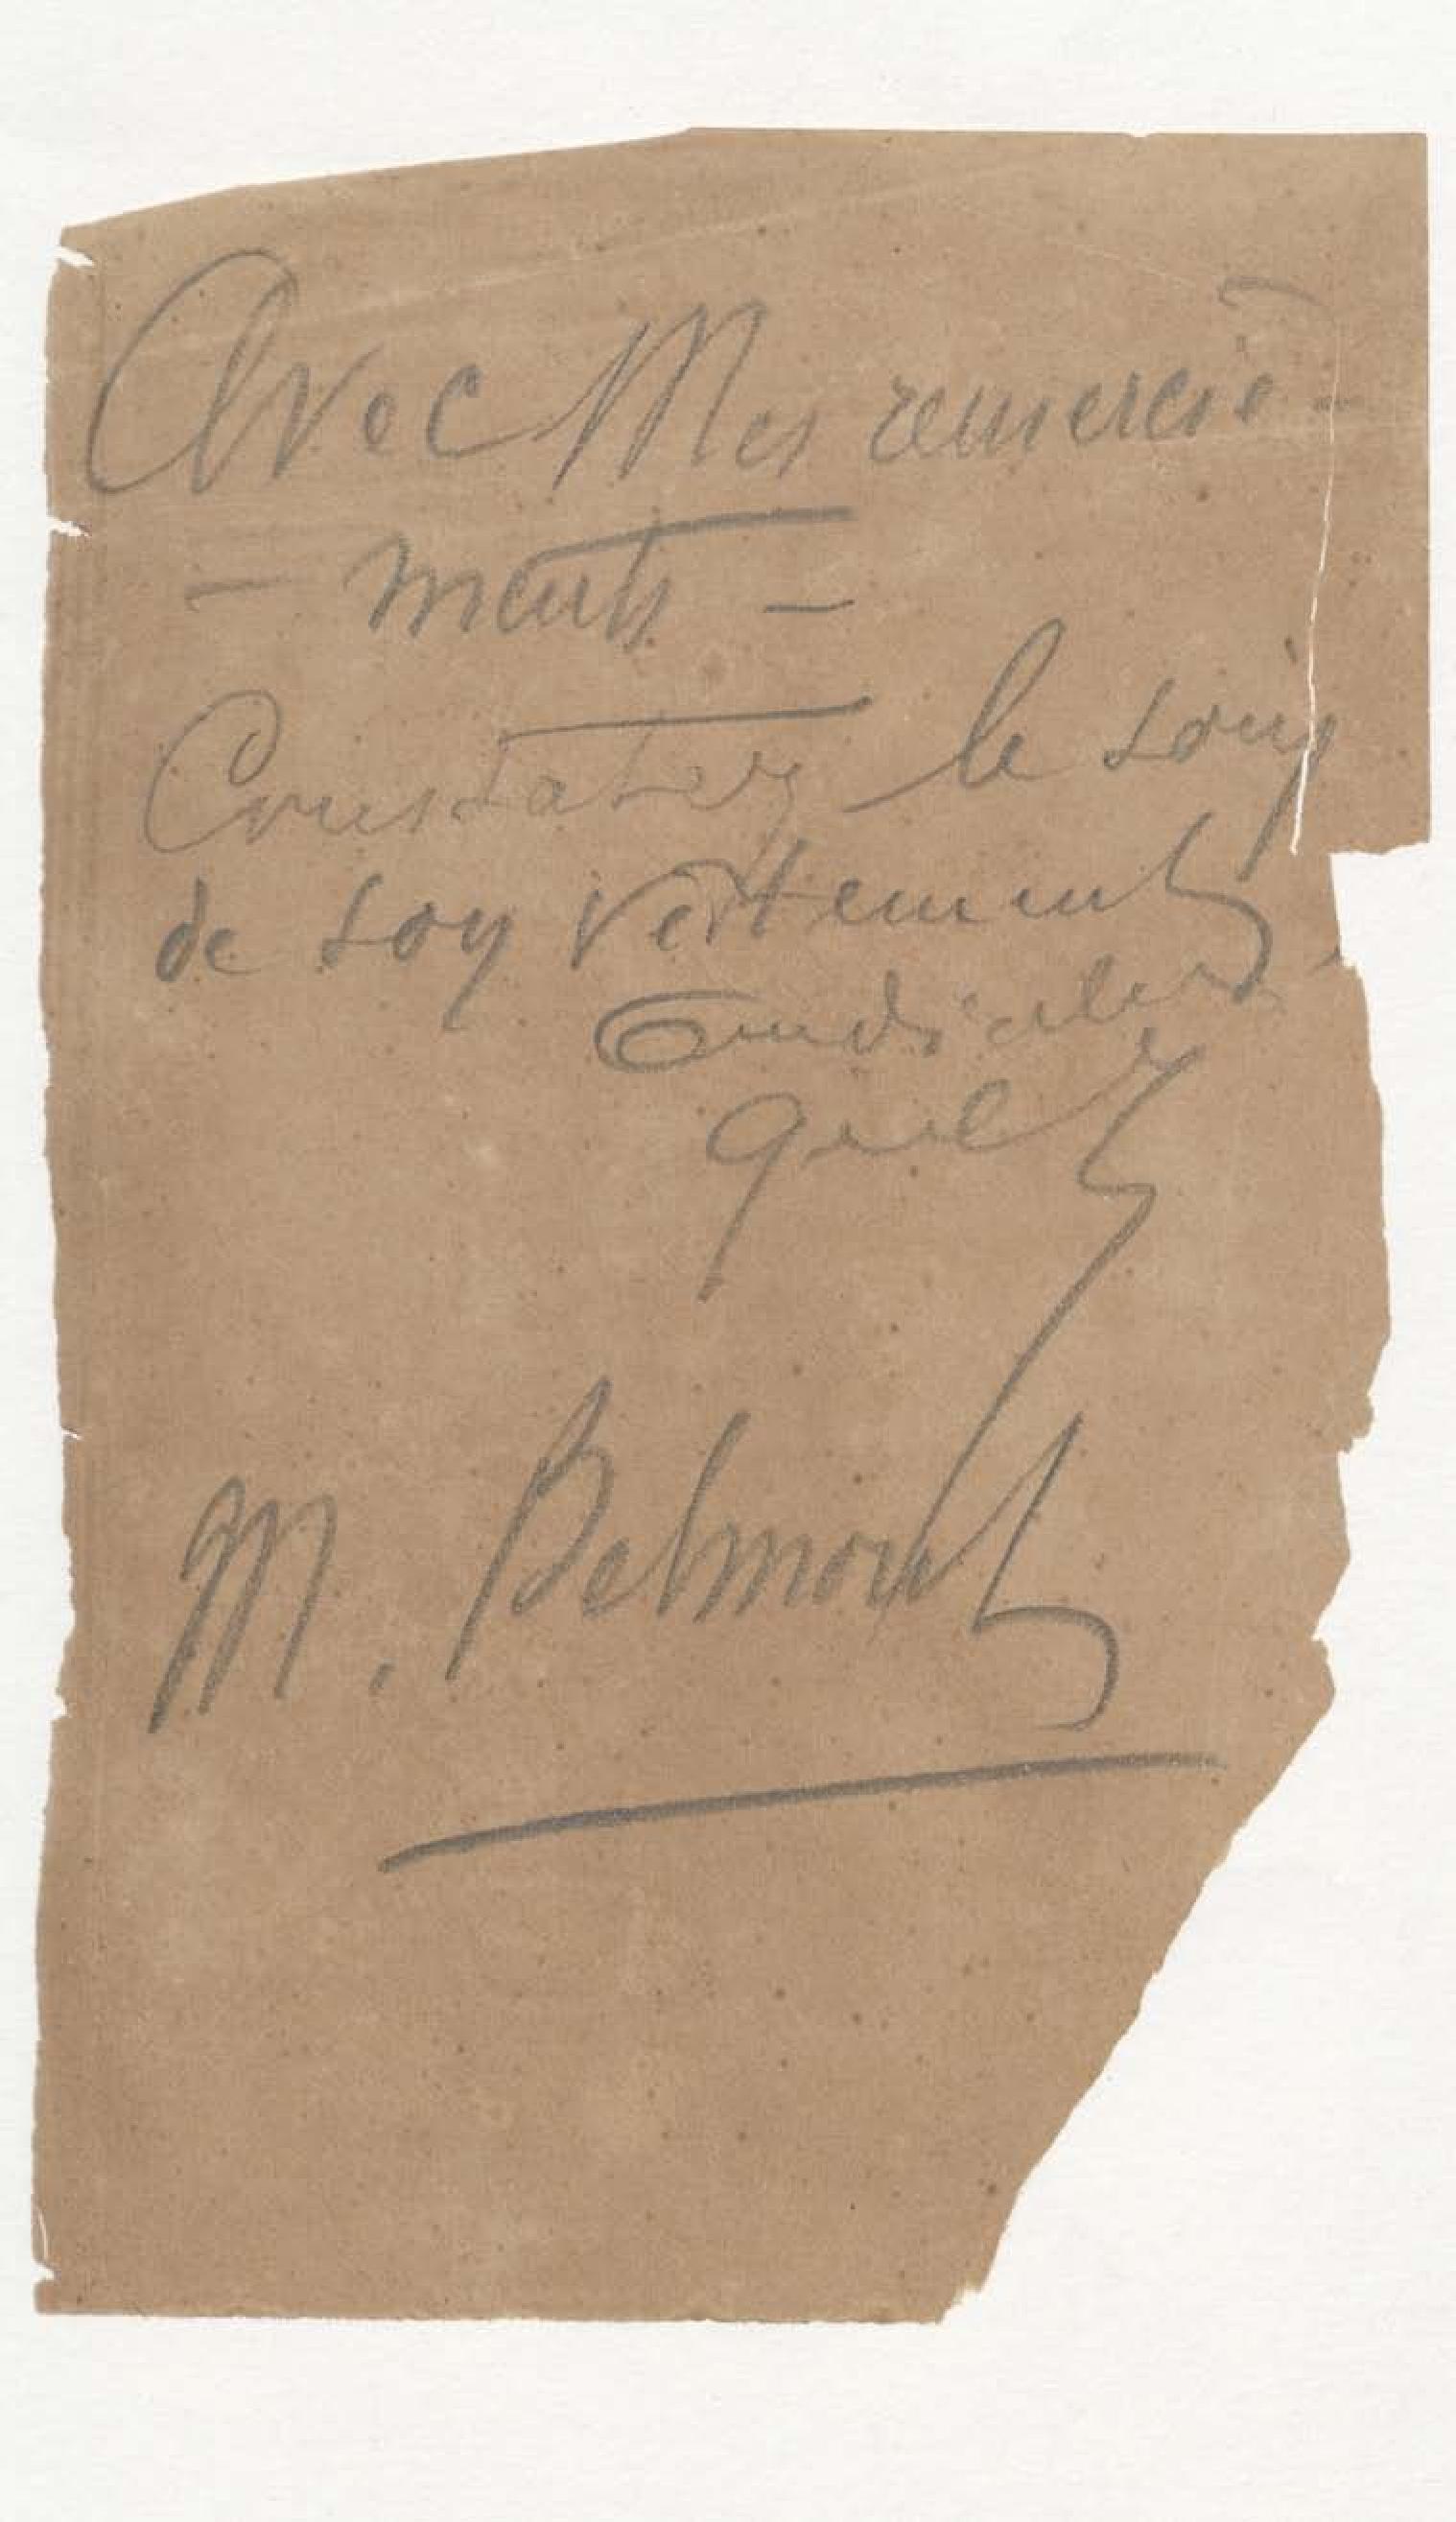 Avec Mes remercie-
- ments -
Constatez le soin
de son vettement
quel
M. Belmont